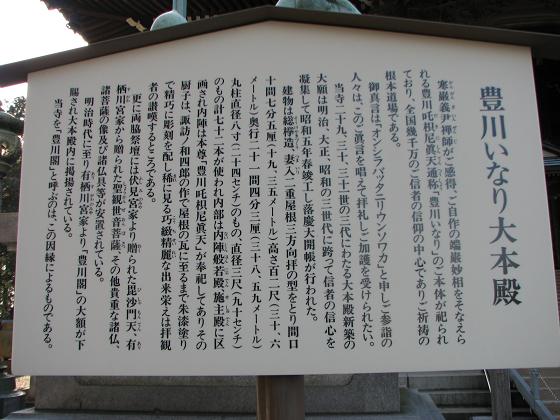 豊川いなり大本殿
寒巌義尹禅師がご感得、ご自作の端厳妙相をそなえら
れる豊川吒枳尼眞天通称、「豊川いなり」のご本体が祀られ
ており、全国幾千万のご信者の信仰の中心でありご祈祷の
根本道場である。
御真言は、「オンシラバッタニリウンソワカ」と申しご参詣の
人々は、このご真言を唱えて拝礼しご加護を受けられたい。
当寺二十九、三十、三十一世の三代にわたる大本殿新築の
大願は明治、大正、昭和の三世代に跨って信者の信心を
凝集して昭和五年春竣工し落慶大開帳が行われた。
建物は総欅造、妻(入)二重屋根三方向拝の型をとり間口
十間七分五厘(十九、三五メートル)高さ百二尺(三十、六
メートル)奥行二十一間四分三厘(三十八、五九メートル)
丸柱直径八寸(二十四センチ)のもの、直径三尺(九十センチ)
のもの計七十二本が使われ内部は内陣般若殿、施主殿に区
画され内陣は本尊「豊川吒枳尼眞天」が奉祀してありその
厨子は、諏訪ノ和四郎の作で屋根の瓦に至るまで朱漆塗り
で精巧な彫刻を配し稀に見る巧緻精麗な出来栄えは拝観
者の讃嘆するところである。
更に両脇祭壇には伏見宮家より贈られた毘沙門天、有
栖川宮家から贈られた聖観世音菩薩、その他貴重な諸仏、
諸菩薩の像及び諸仏具等が安置されている。
明治時代に至り有栖川宮家より「豊川閣」の大額が下
賜され大本殿内に掲揚されている。
当寺を「豊川閣」と呼ぶのは、この因縁によるものである。